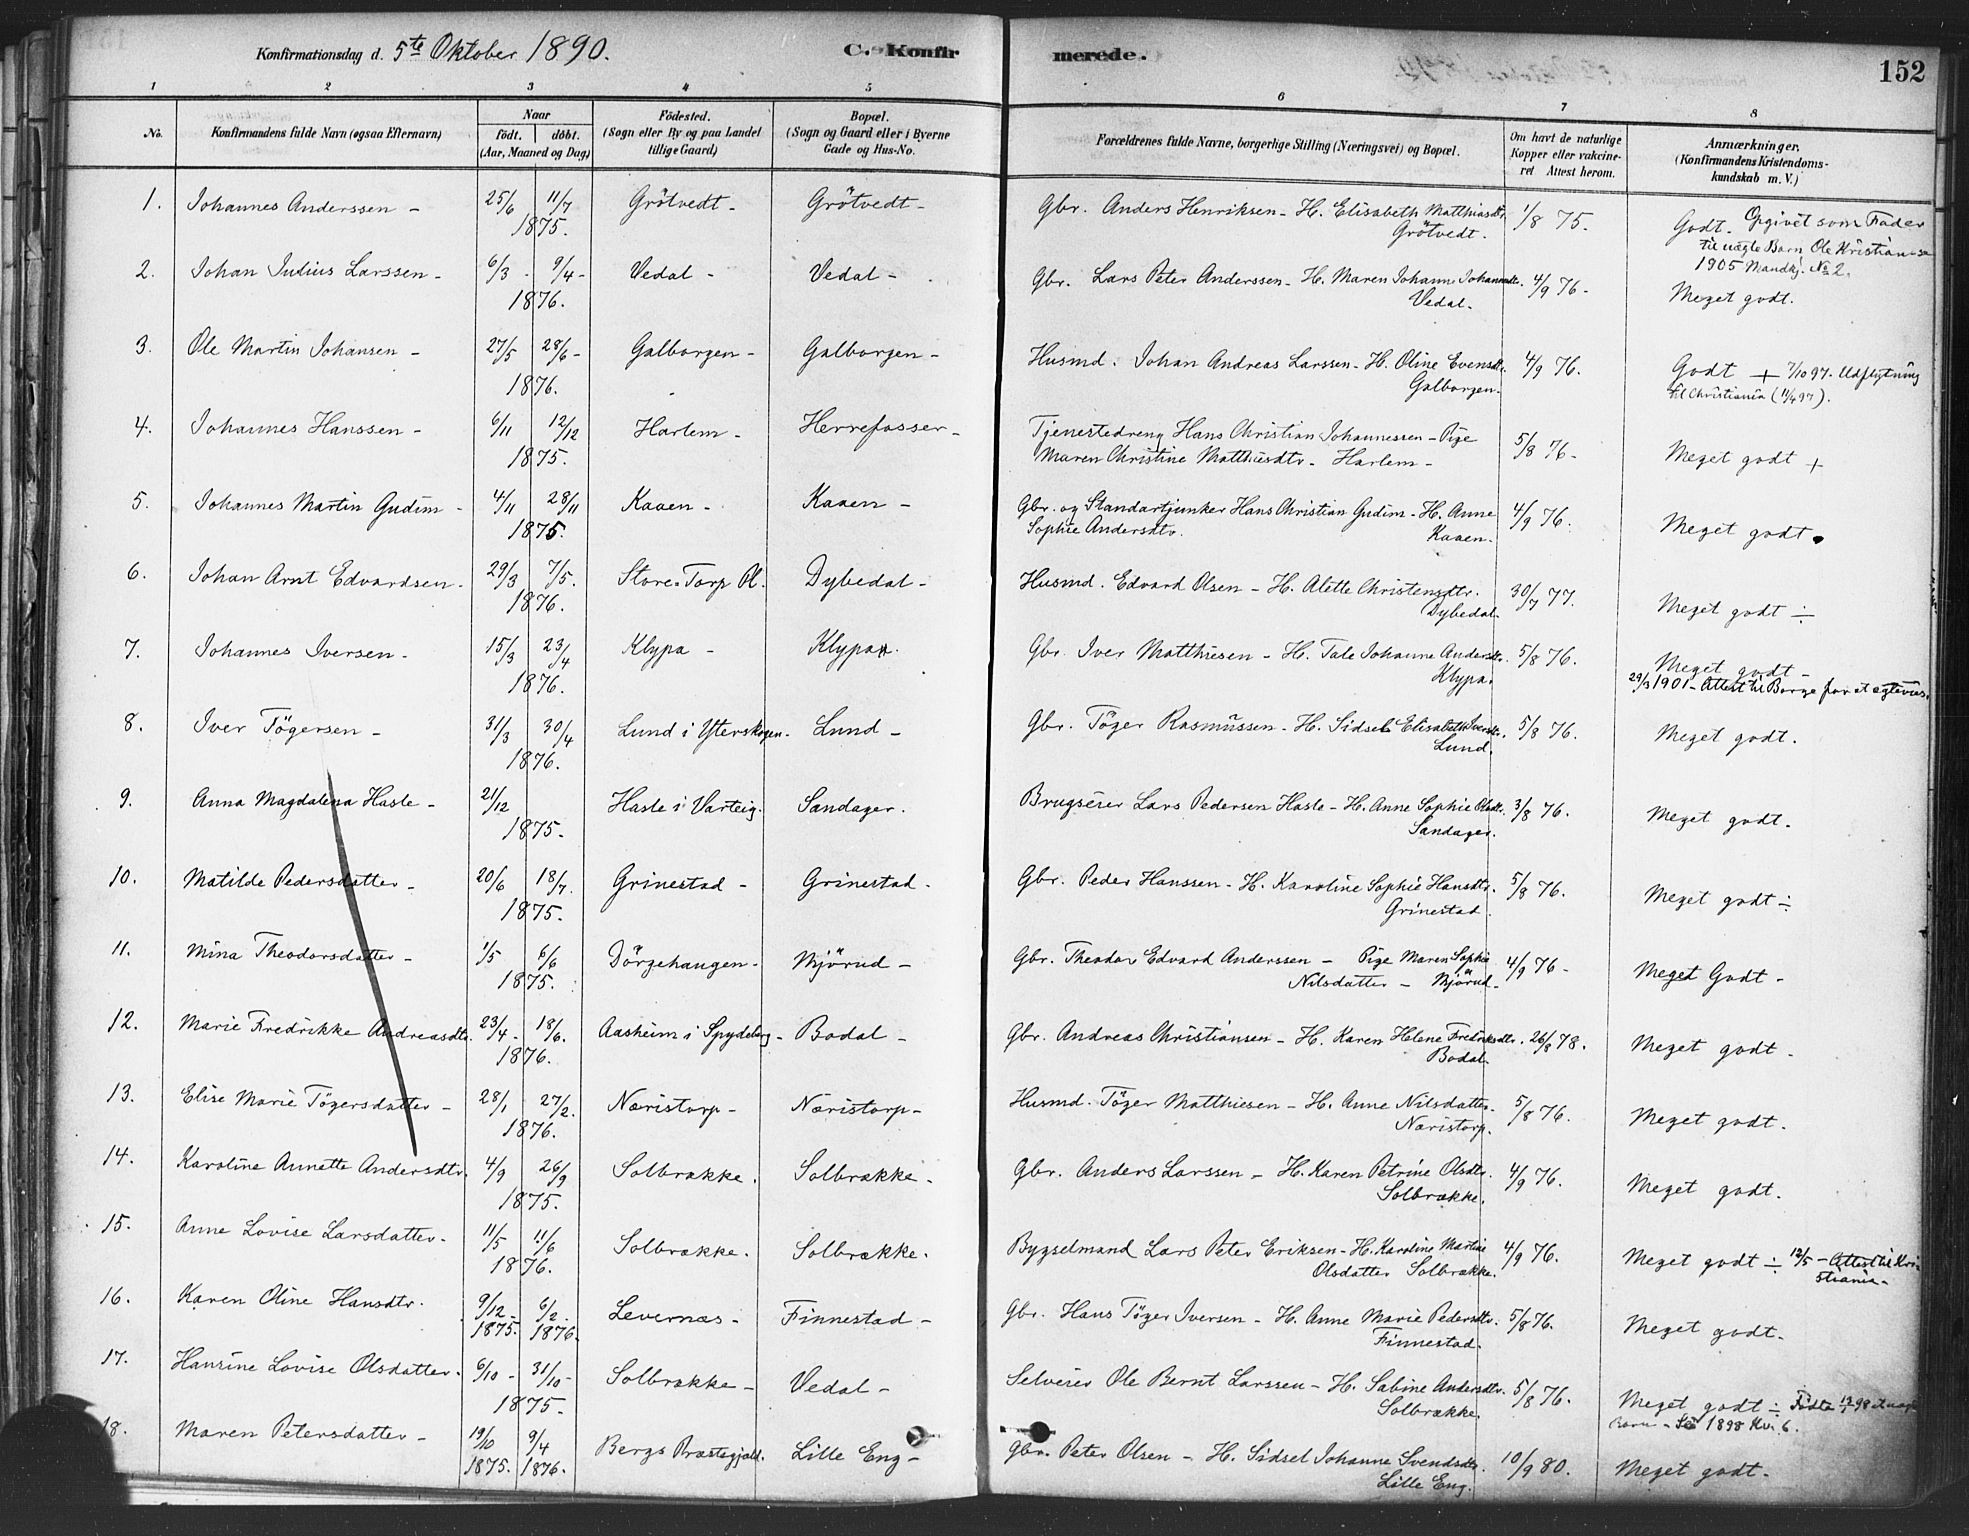 Konfirmationsdag d. 5te Oktober 1890. C. Konfirmerede. 152
1 2 3 4 5 6 7 8
No. Konfirmandens fulde Navn (ogsaa Efternavn) Naar födt. döbt. (Aar, Maaned og Dag) Födested. (Sogn eller By og paa Landet tillige Gaard) Bopæl. (Sogn og Gaard eller i Byerne Gade og Hus-No. Forældrenes fulde Navne, borgerlige Stilling (Næringsvei) og Bopæl. Om havt de naturlige Kopper eller vakcineret Attest herom. Anmærkninger. (Konfirmandens Kristendomskundskab m. V.)
1. Johannes Anderssen - 25/6 11/7 1875. Grötvedt - Grötvedt - Gbr. Anders Henriksen - H. Elisabeth Matthiasdtr. Grötvedt. 1/8 75. Godt. Opgivet som Fader til uægte Barn Ole Kristian 1905 Mandkj. No 2.
2. Johan Julius Larssen - 6/3 - 9/4 - 1876. Vedal - Vedal - Gbr. Lars Peter Anderssen - H. Maren Johanne Johannesdtr. Vedal. 4/9 76 - Meget godt.
3. Ole Martin Johansen - 27/5 28/6 - 1876. Galborgen - Galborgen - Husmd. Johan Andreas Larssen - H. Oline Evensdtr. Galborgen. 4/9 76. Godt + 7/10 97. Udflytning til Christiania (11/4 97).
4. Johannes Hanssen - 6/11 12/12 1875. Harlem - Herrefosser - Tjenestedreng Hans Christian Johannessen - Pige Maren Christine Matthisdtr - Harlem - 5/8 76 - Meget godt +
5. Johannes Martin Gudim - 4/11 28/11 1875. Kaaen - Kaaen - Gbr. og Standartjunker Hans Christian Gudim - H. Anne Sophie Andersdtr. Kaaen. 4/9 76. Meget godt.
6. Johan Arnt Edvardsen. 29/3 7/5. 1876. Store-Torp Öl. Dybedal - Husmd. Edvard Olsen - H. Alette Christensdtr. Dybedal. 30/7 77. Meget godt ÷
7. Johannes Iversen - 15/3 23/4 1876. Klypa - Klypa. Gbr. Iver Matthiesen - H. Tale Johanne Andersdtr. Klypa. 5/8 76. Meget godt - 29/3 1901 - Attest til Borge for at egtevies.
8. Iver Tögersen - 31/3 30/4 1876. Lund i Ytterskogen. Lund - Gbr. Töger Rasmüssen - H. Sidsel Elisabeth Iversdtr. Lund. 5/8 76. Meget godt.
9. Anna Magdalena Hasle - 21/12 1875. Hasle i Varteig. Sandager. Brugseier Lars Pedersen Hasle - H. Anne Sophie Olsdtr. Sandager. 3/8 76. Meget godt.
10. Matilde Pedersdatter - 20/6 18/7. 1875. Grinestad - Grinestad. Gbr. Peder Hanssen - H. Karoline Sophie Hansdtr. Grinestad. 5/8 76. Meget godt ÷
11. Mina Theodorsdatter - 1/5 6/6 1875. Dörgehaugen - Mjörud - Gbr. Theodor Edvard Anderssen - Pige Maren Sophie Nilsdatter - Mjörud - 4/9 76 - Meget Godt -
12. Marie Fredrikke Andreasdtr. 23/4 - 18/6. 1876. Aasheim i Spydeberg - Bodal - Gbr. Andreas Christiansen - H. Karen Helene Fredriksdtr. Bodal. 26/8 78. Meget godt -
13. Elise Marie Tögersdatter - 28/1 27/2. 1876. Næristorp - Næristorp - Husmd. Töger Matthiesen - H. Anne Nilsdatter. Næristorp. 5/8 76. Meget godt.
14. Karoline Annette Andersdtr. 4/9 26/9 1875. Solbrække. Solbrække - Gbr. Anders Larssen - H. Karen Petrine Olsdtr. Solbrække. 4/9 76. Meget godt.
15. Anne Lovise Larsdatter - 11/5 11/6 1876. Solbrække. Solbrække. Bygselmand Lars Peter Eriksen - H. Karoline Martine Olsdatter Solbrække. 4/9 76. Meget godt ÷ 12/5 - Attest til Kristiania -
16. Karen Oline Hansdtr. 9/12 - 1875. 6/2. 1876. Levernæs - Finnestad - Gbr. Hans Töger Iversen - H. Anne Marie Pedersdtr. Finnestad. 5/8 76. Meget godt.
17. Hansine Lovise Olsdatter. 6/10 - 31/10 - 1875. Solbrække - Vedal - Selveier Ole Bernt Larssen - H. Sabine Andersdtr. Solbrække. 5/8 76. Meget godt ÷ Födte 98 et uægte Barn - 1898 Kvi. 6.
18. Maren Petersdatter - 19/10 1875. 9/4 1876. Bergs Præstegjeld. Lille Eng - Gbr. Peter Olsen - H. Sidsel Johanne Svendsdtr. Lille Eng. 10/9 80. Meget godt.